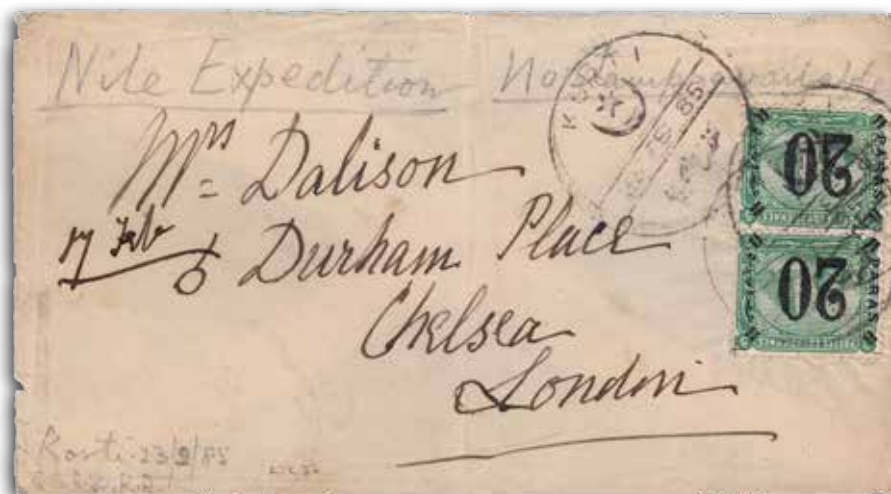 Nile Expedition
No stamps available
KOROTI
FE 85
Mrs Dalison
17 Feb
6 Durham Place
Chelsea
London
20
PARAS
20
PARAS